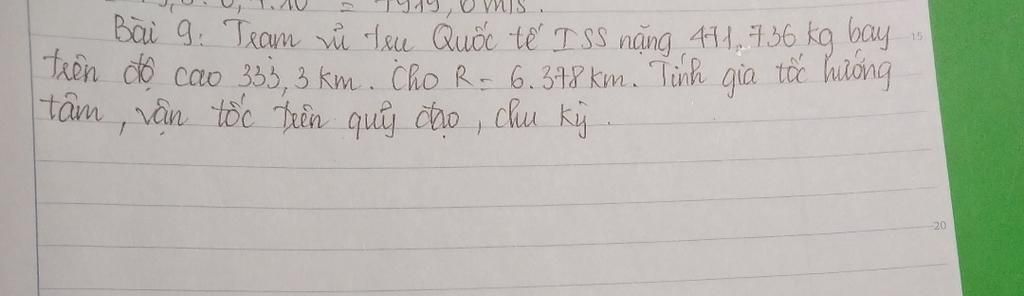 = 7919,6 m/s.
Bài 9: Trạm vũ trụ Quốc tế ISS nặng 471.736 kg bay
trên độ cao 333,3 km. Cho R = 6.378 km. Tính gia tốc hướng
tâm, vận tốc trên quỹ đạo, chu kỳ.
15
20